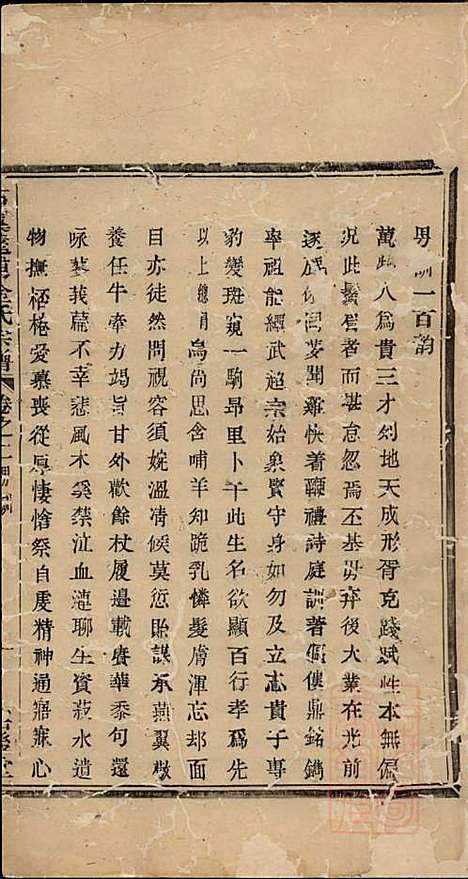 男訓一百韵
萬物人為貴三才列地天成形胥克踐賦性本無偏
况此鬚眉者而甚怠忽焉丕基毋弃後大業在光前
逐休同夢聞雞快著鞭禮詩庭訓著傴僂鼎銘鐫
率祖能繩武超宗始象賢守身如勿及立志貴于專
豹變斑窺一駒昂里卜千此生名欲顯百行孝為先
以上總冒烏尚思含哺羊知跪乳憐髮膚渾忘却面
目亦徒然問視容須婉溫凊候莫愆貽謀承燕翼檄
養任牛牽力竭旨甘外歡餘杖履邊載賡華黍句還
咏蓼莪篇不幸悲風木奚禁泣血漣聊生資菽水遺
物撫桮棬愛慕喪從厚悽愴祭自虔精神通寤寐心
氏宗譜 卷之 男訓 一 堂